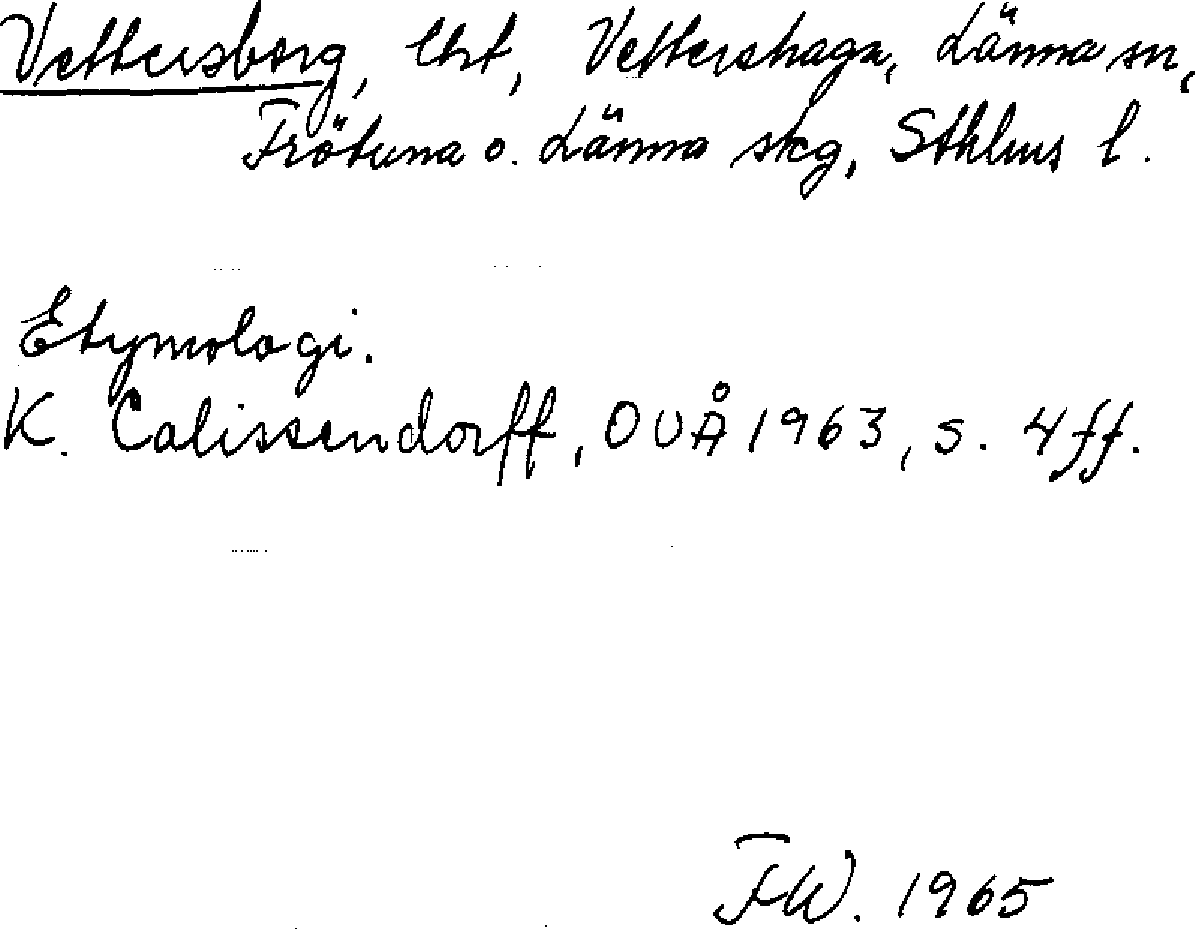 Vettersborg, lht, Vettershaga, Länna sn,
Frötuna o. Länna skg, Sthlms l.
Etymologi.
K. Calissendorff, OUÅ 1963, s. 4 ff.
FW. 1965